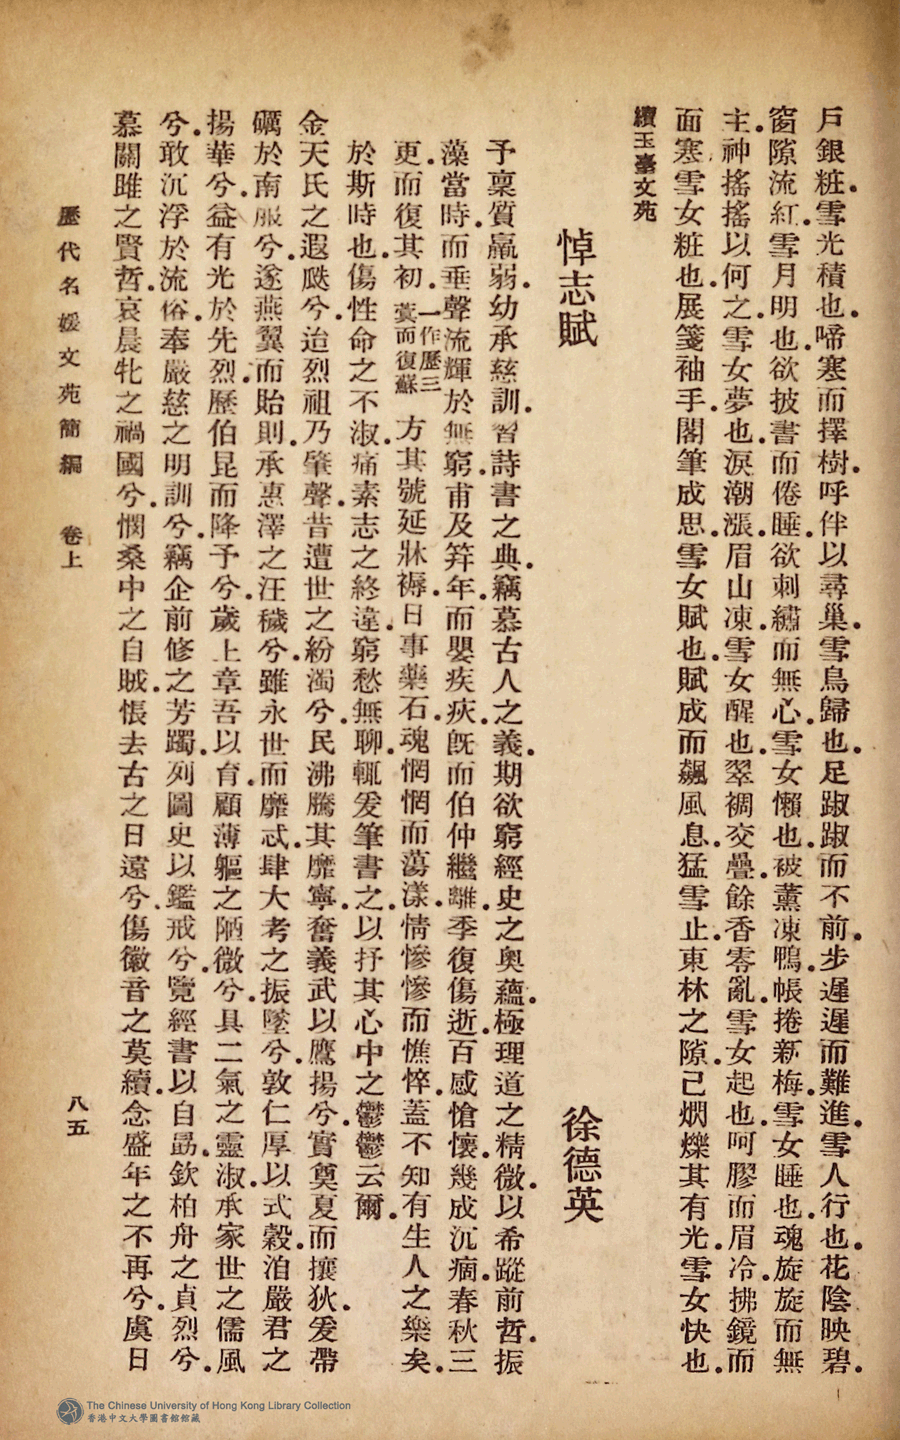 戶銀粧雪光積也啼寒而擇樹呼伴以尋巢雪鳥歸也足踧踧而不前步遲遲而難進雪人行也花陰映碧
窗隙流紅雪月明也欲披書而倦睡欲刺繡而無心雪女懶也被薰凍鴨帳捲新梅雪女睡也魂旋旋而無
主神搖搖以何之雪女夢也淚潮漲眉山凍雪女醒也翠裯交疊餘香零亂雪女起也呵膠而眉冷拂鏡而
面寒雪女粧也展箋袖手閣筆成思雪女賦也賦成而飆風息猛雪止東林之隙已烱爍其有光雪女快也
續玉臺文苑
悼志賦 徐德英
予稟質羸弱幼承慈訓習詩書之典竊慕古人之義期欲窮經史之奧蘊極理道之精微以希蹤前哲振
藻當時而垂聲流輝於無窮甫及筓年而嬰疾疢旣而伯仲繼離季復傷逝百感愴懷幾成沉痼春秋三
更而復其初一作歷三蓂而復蘇方其號延牀褥日事藥石魂惘惘而蕩漾情慘慘而憔悴蓋不知有生人之樂矣
於斯時也傷性命之不淑痛素志之終違窮愁無聊輒爰筆書之以抒其心中之鬱鬱云爾
金天氏之遐敻兮迨烈祖乃肇聲昔遭世之紛濁兮民沸騰其靡寧奮義武以鷹揚兮實奠夏而攘狄爰帶
礪於南服兮遂燕翼而貽則承惠澤之汪穢兮雖永世而靡忒肆大考之振墜兮敦仁厚以式穀洎嚴君之
揚華兮益有光於先烈歷伯昆而降予兮歲上章吾以育顧薄軀之陋微兮具二氣之靈淑承家世之儒風
兮敢沉浮於流俗奉嚴慈之明訓兮竊企前修之芳躅列圖史以鑑戒兮覽經書以自勗欽柏舟之貞烈兮
慕關雎之賢哲哀晨牝之禍國兮憫桑中之自賊悵去古之日遠兮傷徽音之莫續念盛年之不再兮虞日
歷代名媛文苑簡編 卷上 八五
The Chinese University of Hong Kong Library Collection
香港中文大學圖書館館藏